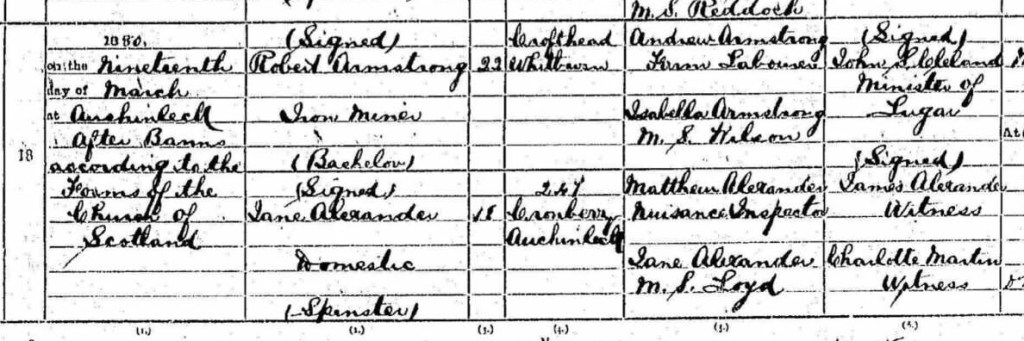 M. S. Reddoch
18
1880.
on the Nineteenth
day of March
at Auchinleck
After Banns
according to the
Forms of the
Church of
Scotland
(Signed)
Robert Armstrong
Iron Miner
(Bachelor)
(Signed)
Jane Alexander
Domestic
(Spinster)
22
18
Crofthead
Whitburn
247
Cronberry
Auchinleck
Andrew Armstrong
Farm Labourer
Isabella Armstrong
M. S. Wilson
Matthew Alexander
Nuisance Inspector
Jane Alexander
M. S. Loyd
(Signed)
John
Minister of
Lugar
(Signed)
James Alexander
Witness
Charlotte Martin
Witness
(1.)
(2.)
(3.)
(4.)
(5.)
(6.)